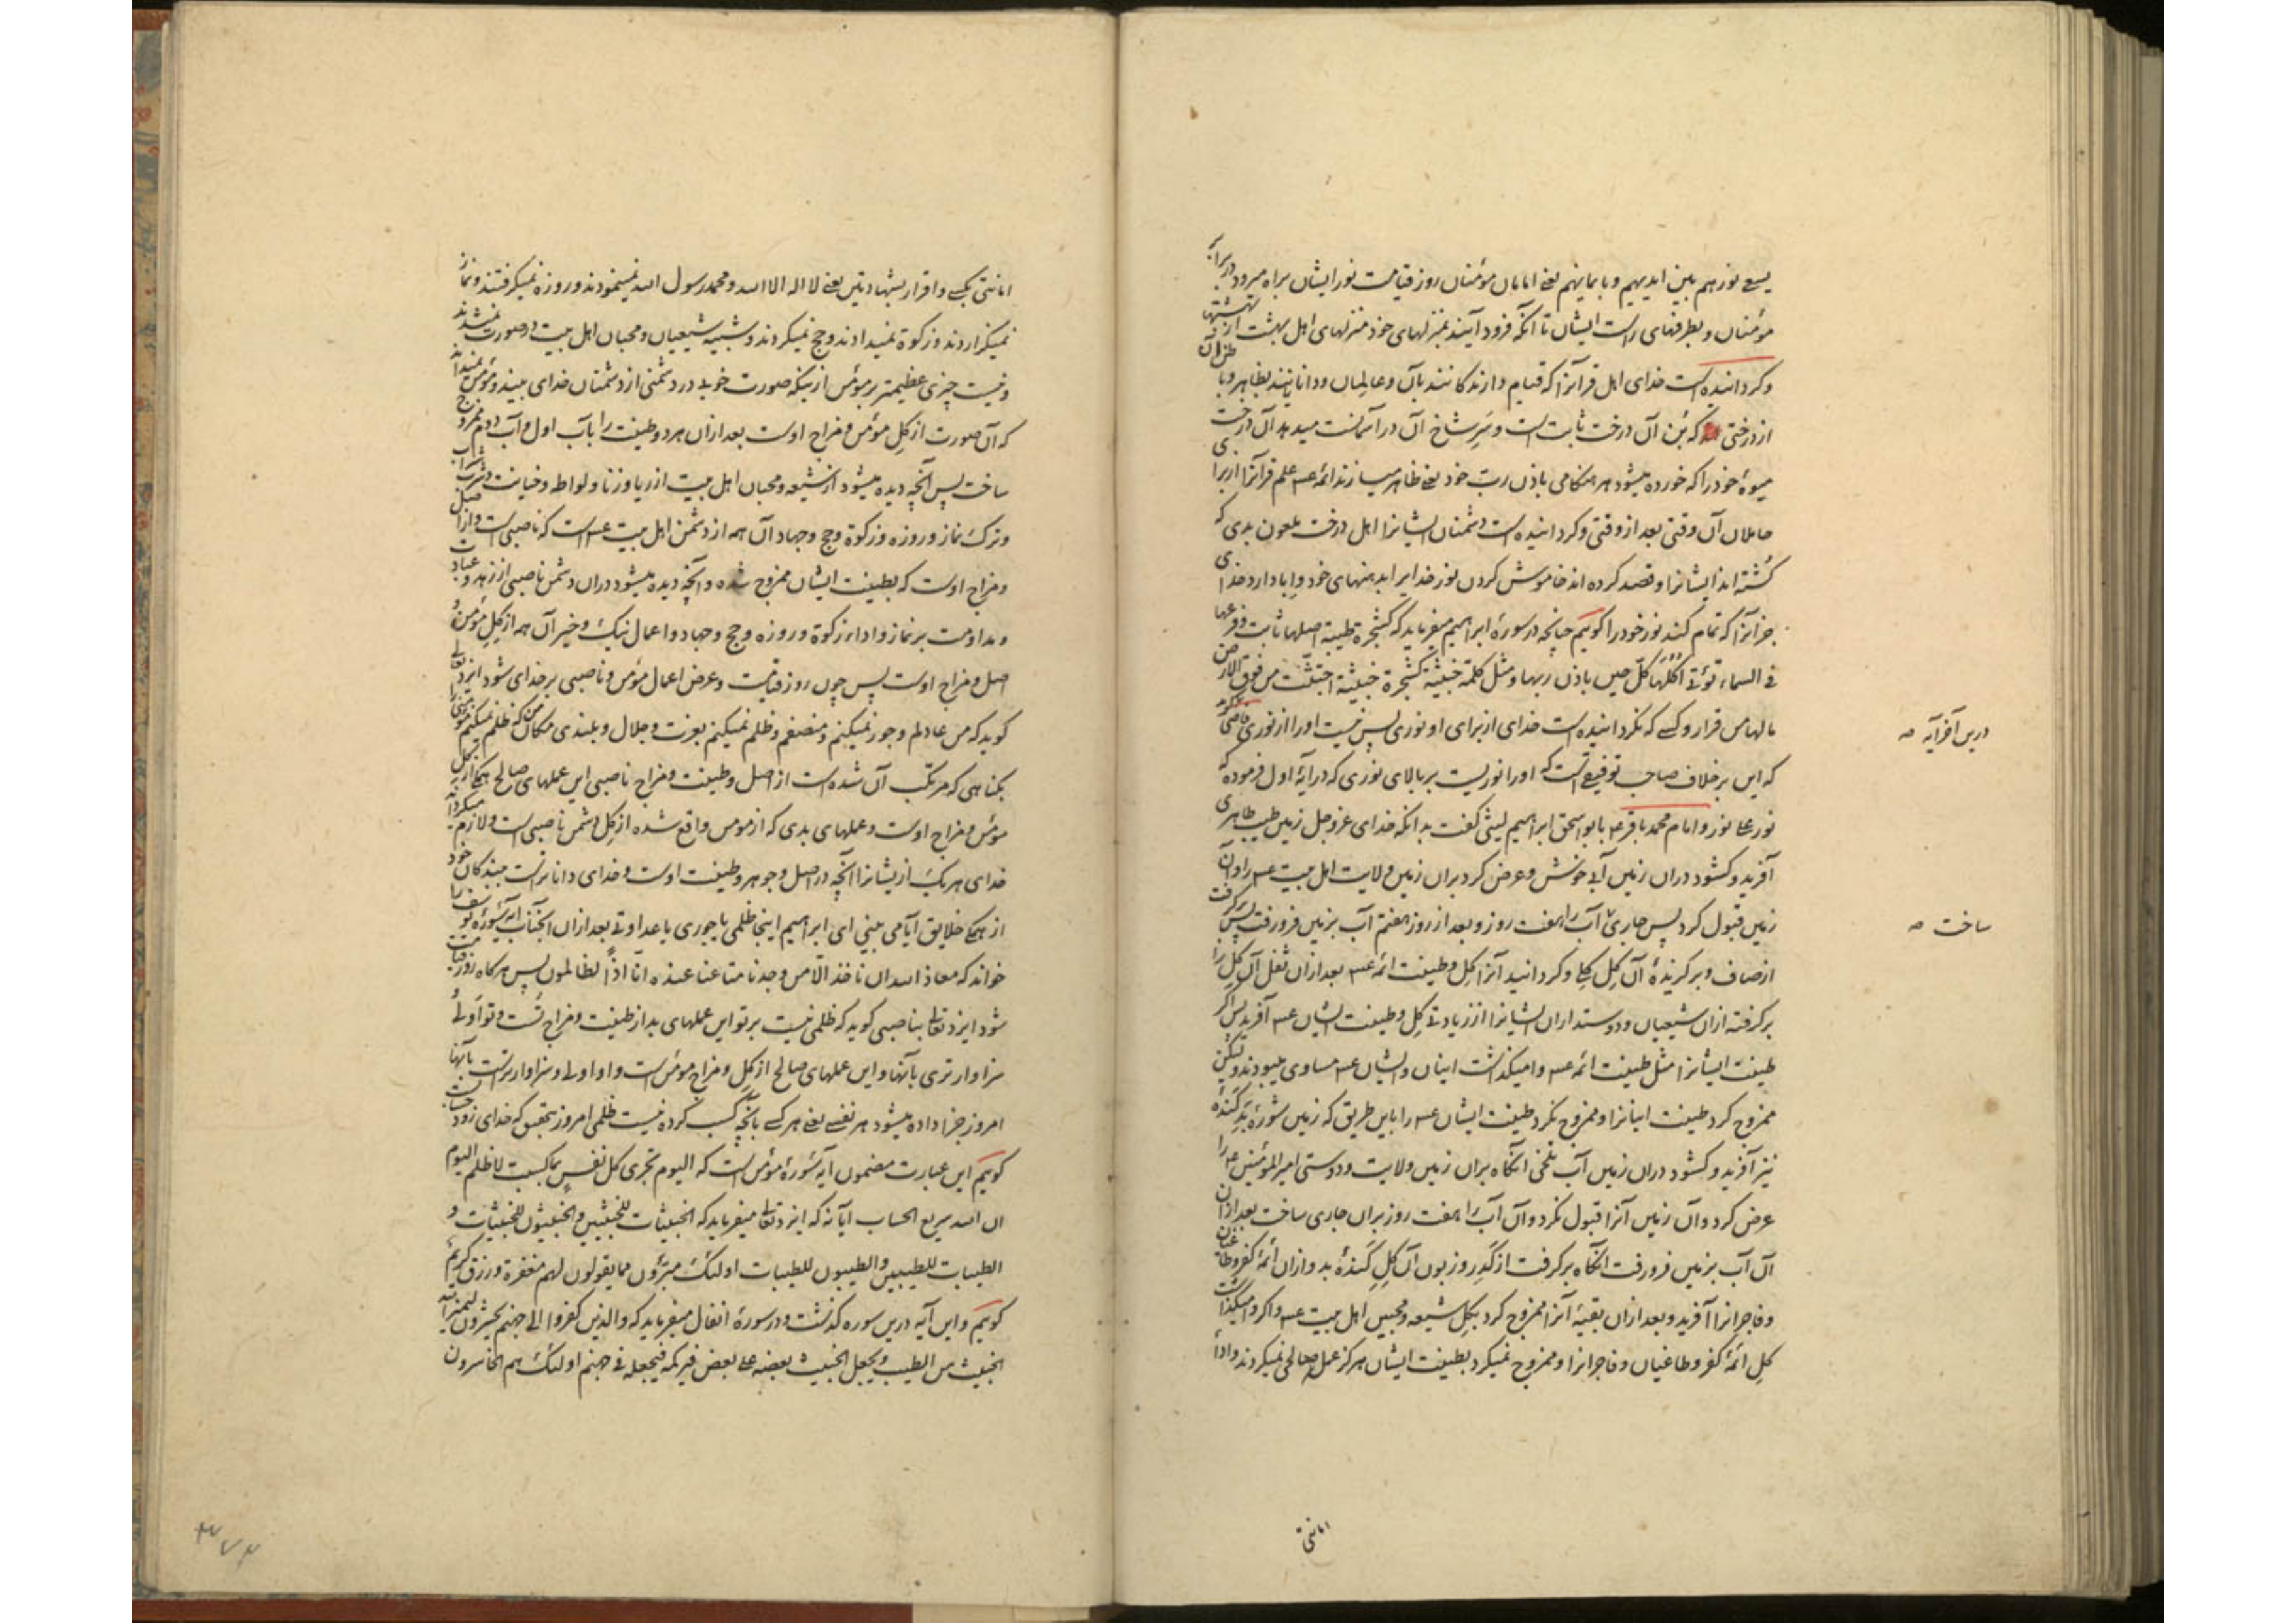 یسعی نورهم بین ایدیهم و بایمانهم یعنی امامان مؤمنان روز قیامت نور ایشان براه میرود در برابر
مؤمنان و بطرفهای راست ایشان تا آنکه فرود آیند بمنزلهای خود منزلهای اهل بهشت از بهشتها
و کردانیده است خدای اهل قرآنرا که قیام دارندکانند بآن و عالمان و دانایانند بظاهر و باطن آن
از درختی که بُن آن درخت ثابت است و سَرِ شاخ آن در آسمانست میدهد آن درخت
میوهٔ خود را که خورده میشود هر هنکامی باذن ربّ خود یعنی ظاهر میسازند ائمه عـم علم قرآنرا از برای
حاملان آن وقتی بعد از وقتی و کردانیده است دشمنان ایشانرا اهل درخت ملعون بدی که
کُشته‌اند ایشانرا و قصد کرده‌اند خاموش کردن نور خدایرا بدهنهای خود و اِبا دارد خدای
جز آنرا که تمام کند نور خود را کوئیم چنانچه در سورهٔ ابراهیم میفرماید که کشجرة طیبة اصلها ثابت و فرعها
فی السماء تؤتی اُکُلَها کلّ حین باذن ربها و مثل کلمة خبیثة کشجرة خبیثة اجتثّت من فوق الارض
مالها من قرار و کسی که نکردانیده است خدای از برای او نوری پس نیست او را از نوری
درین آخر آیه صـ
که این بر خلاف صاحب توفیع است که او را نوریست بر بالای نوری که در آیهٔ اول فرموده که
نور علی نور و امام محمد باقر عـم بابو اسحق ابراهیم لیثی کفت بدانکه خدای عز و جل زمین طیب طاهری
آفرید و کشود دران زمین آبی خوش و عرض کرد بران زمین ولایت اهل بیت عـم را و آن
زمین قبول کرد پس جاری آب را هفت روز و بعد از روز هفتم آب بزمین فرو رفت پس برکرفت
ساخت صـ
از صاف و برکزیدهٔ آن کِل کِلی و کردانید آنرا کِل و طینت ائمه عـم بعد ازان ثفل آن کِل را
برکرفته ازان شیعیان و دوستداران ایشانرا از زیادتی کِل و طینت ایشان عـم آفرید پس اکر
طینت ایشانرا مثل طینت ائمه عـم وامیکذاشت اینان و ایشان عـم مساوی میبودند ولیکن
ممزوج کرد طینت اینانرا و ممزوج نکرد طینت ایشان عـم را باین طریق که زمین شورهٔ بَدِ کَندهٔ
نیز آفرید و کشود دران زمین آب تلخی انکاه بران زمین ولایت و دوستی امیر المؤمنین عـم را
عرض کرد و آن زمین آنرا قبول نکرد و آن آب را هفت روز بران جاری ساخت بعد ازان
آن آب بزمین فرو رفت انکاه برکرفت از کَدِر و زبون آن کِلِ کَندهٔ بد و ازان ائمهٔ کفر و طاغیان
و فاجرانرا آفرید و بعد ازان بقیهٔ آنرا ممزوج کرد بکِل شیعه و محبین اهل بیت عـم و اکر وامیکذاشت
کِل ائمهٔ کفر و طاغیان و فاجرانرا و ممزوج نمیکرد بطینت ایشان هرکز عمل صالحی نمیکردند و اداء
امانتی
امانتی بکسی و اقرار بشهادتین یعنی لا اله الا الله و محمد رسول الله نمینمودند و روزه نمیکرفتند و نماز
نمیکزاردند و زکوة نمیدادند و حج نمیکردند و شبیه شیعیان و محبان اهل بیت در صورت نمیشدند
و نیست چیزی عظیمتر بر مؤمن از اینکه صورت خوبی در دشمنی از دشمنان خدای بیند و مؤمن نمیداند
که آن صورت از کِل مؤمن و مزاج اوست بعد ازان هر دو طینت را بآب اول و آب دوم ممزوج
ساخت پس آنچه دیده میشود از شیعه و محبان اهل بیت از ریا و زنا و لواطه و خیانت و شرب شراب
و ترک نماز و روزه و زکوة و حج و جهاد آن همه از دشمن اهل بیت عـم است که ناصبی است و از اصل
و مزاج اوست که بطینت ایشان ممزوج شده و آنچه دیده میشود دران دشمن ناصبی از زهد و عبادت
و مداومت بر نماز و اداء زکوة و روزه و حج و جهاد و اعمال نیک و خیر آن همه از کِلِ مؤمن و
اصل و مزاج اوست پس چون روز قیامت و عرض اعمال مؤمن و ناصبی بر خدای شود ایزد تعالی
کوید که من عادلم و جور نمیکنم و منصفم و ظلم نمیکنم بعزت و جلال و بلندی مکان من که ظلم نمیکنم مؤمنی را
بکناهی که مرتکب آن شده است از اصل و طینت و مزاج ناصبی این عملهای صالح همکی از کِل
مؤمن و مزاج اوست و عملهای بدی که از مؤمن واقع شده از کِل دشمن ناصبی است و لازم میکرداند
خدای هر یک از ایشانرا آنچه در اصل و جوهر و طینت اوست و خدای داناتر است ببندکان خود
از همکی خلایق آیا می بینی ای ابراهیم اینجا ظلمی یا جوری یا عداوتی بعد ازان آنجناب آیهٔ سورهٔ یوسف را
خواند که معاذ الله ان ناخذ الّا من وجدنا متاعنا عنده انّا اذاً لظالمون پس هرکاه روز قیامت
شود ایزد تعالی بناصبی کوید که ظلمی نیست بر تو این عملهای بد از طینت و مزاج تست و تو اَولی و
سزاوارتری بآنها و این عملهای صالح از کِل و مزاج مؤمن است و او اولی و سزاوارتر است بآنها
امروز جزا داده میشود هر نفسی یعنی هر کسی بآنچه کسب کرده نیست ظلمی امروز بتحقیق که خدای زود حسابست
کوئیم این عبارت مضمون آیهٔ سورهٔ مؤمن است که الیوم تجزی کل نفسٍ بما کسبت لا ظلم الیوم
ان الله سریع الحساب ایآنه که ایزد تعالی میفرماید که الخبیثات للخبیثین و الخبیثون للخبیثات و
الطیبات للطیبین و الطیبون للطیبات اولئک مبرّؤن مما یقولون لهم مغفرة و رزق کریم
کوئیم و این آیه درین سوره کذشت و در سورهٔ انفال میفرماید که و الذین کفروا الی جهنم یحشرون لیمیز الله
الخبیث من الطیب و یجعل الخبیث بعضه علی بعض فیرکمه فیجعله فی جهنم اولئک هم الخاسرون